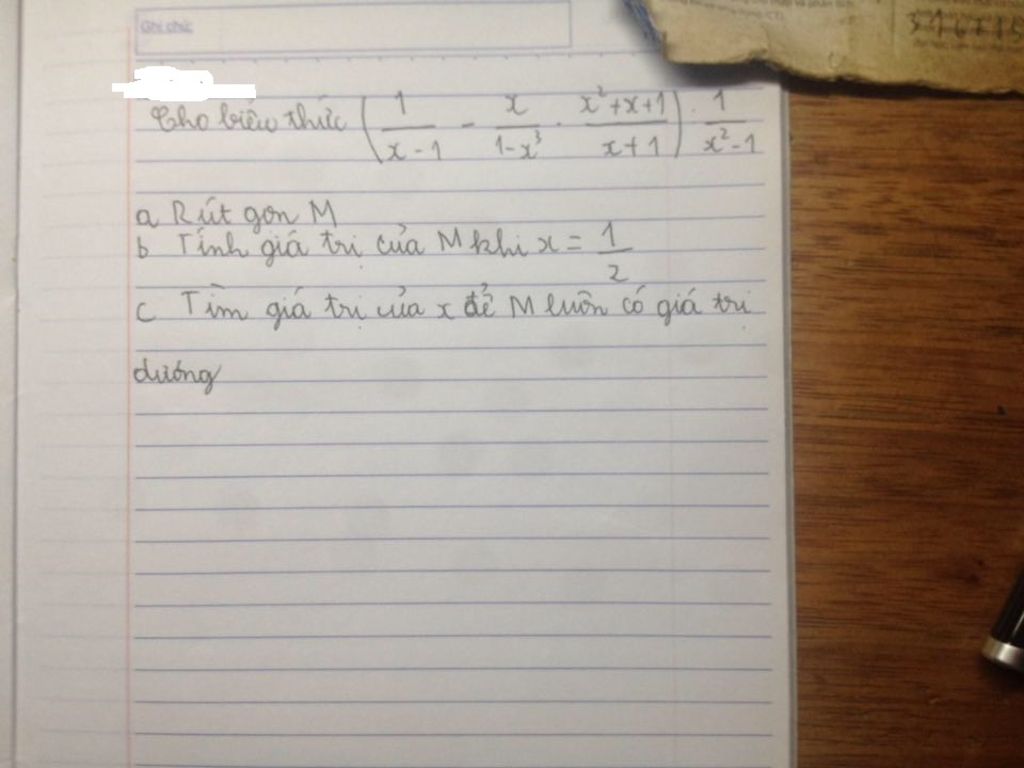 Ghi chú:
316815
Cho biểu thức (1/(x-1) - x/(1-x³) · (x²+x+1)/(x+1)) : 1/(x²-1)
a Rút gon M
b Tính giá trị của M khi x = 1/2
c Tìm giá trị của x để M luôn có giá trị
dướng